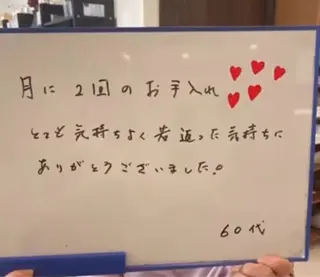 月に2回のお手入れ
とても気持ちよく若返った気持ちに
ありがとうございました!
60代